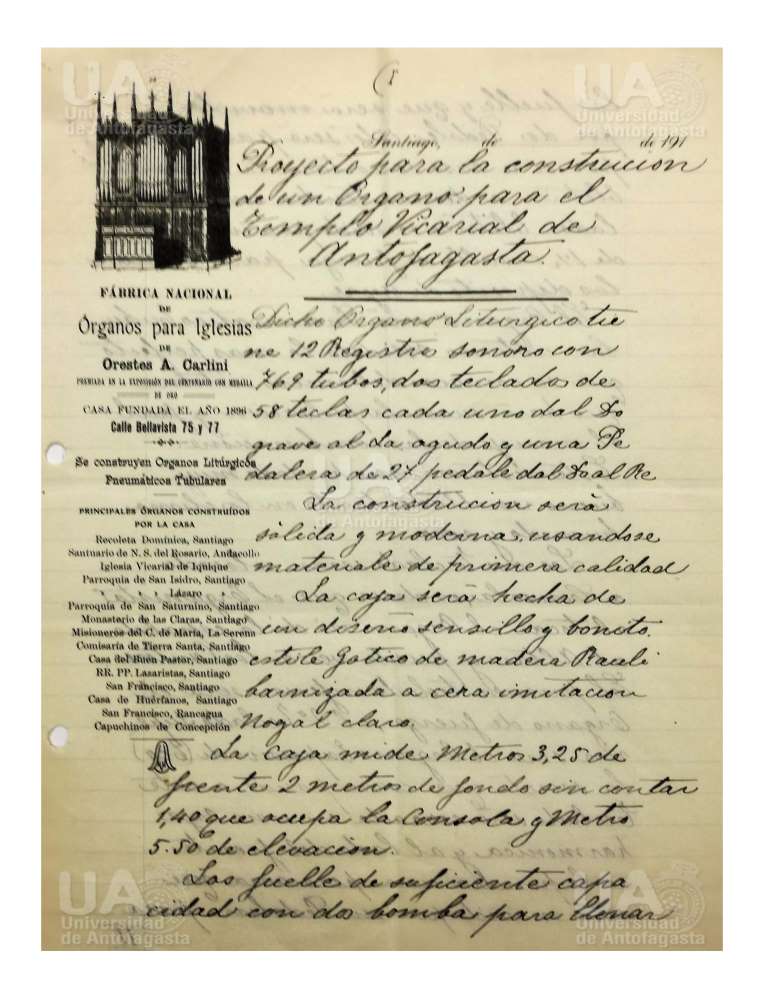 (1
Santiago, de de 191
Proyecto para la construcion
de un Organo para el
Templo Vicarial de
Antofagasta.
FÁBRICA NACIONAL
DE
Órganos para Iglesias
DE
Orestes A. Carlini
PREMIADA EN LA EXPOSICIÓN DEL CENTENARIO CON MEDALLA
DE ORO
CASA FUNDADA EL AÑO 1896
Calle Bellavista 75 y 77
Se construyen Organos Litúrgicos
Pneumáticos Tubulares
PRINCIPALES ÓRGANOS CONSTRUÍDOS
POR LA CASA
Recoleta Domínica, Santiago
Santuario de N. S. del Rosario, Andacollo
Iglesia Vicarial de Iquique
Parroquia de San Isidro, Santiago
" " Lázaro "
Parroquia de San Saturnino, Santiago
Monasterio de las Claras, Santiago
Misioneros del C. de María, La Serena
Comisaría de Tierra Santa, Santiago
Casa del Buen Pastor, Santiago
RR. PP. Lazaristas, Santiago
San Francisco, Santiago
Casa de Huérfanos, Santiago
San Francisco, Rancagua
Capuchinos de Concepción
Dicho Organo Liturgico tie
ne 12 Registro sonoro con
769 tubos, dos teclados de
58 teclas cada uno dal Do
grave al La agudo y una Pe
dalera de 27 pedale dal Do al Re
La construcion serà
sòlida y moderna, usandose
materiale de primera calidad
La caja serà hecha de
un diseño sensillo y bonito,
estile Gotico de madera Rauli
barnizada a cera imitacion
Nogal claro,
La caja mide Metros 3,25 de
frente 2 metros de fondo sin contar
1,40 que ocupa la Consola y Metro
5.50 de elevacion.
Los fuelle de suficiente capa
cidad con do bomba para llenar
UA
Universidad
de Antofagasta
UA
Universidad
de Antofagasta
de Antofagasta
UA
Universidad
de Antofagasta
UA
Universidad
de Antofagasta